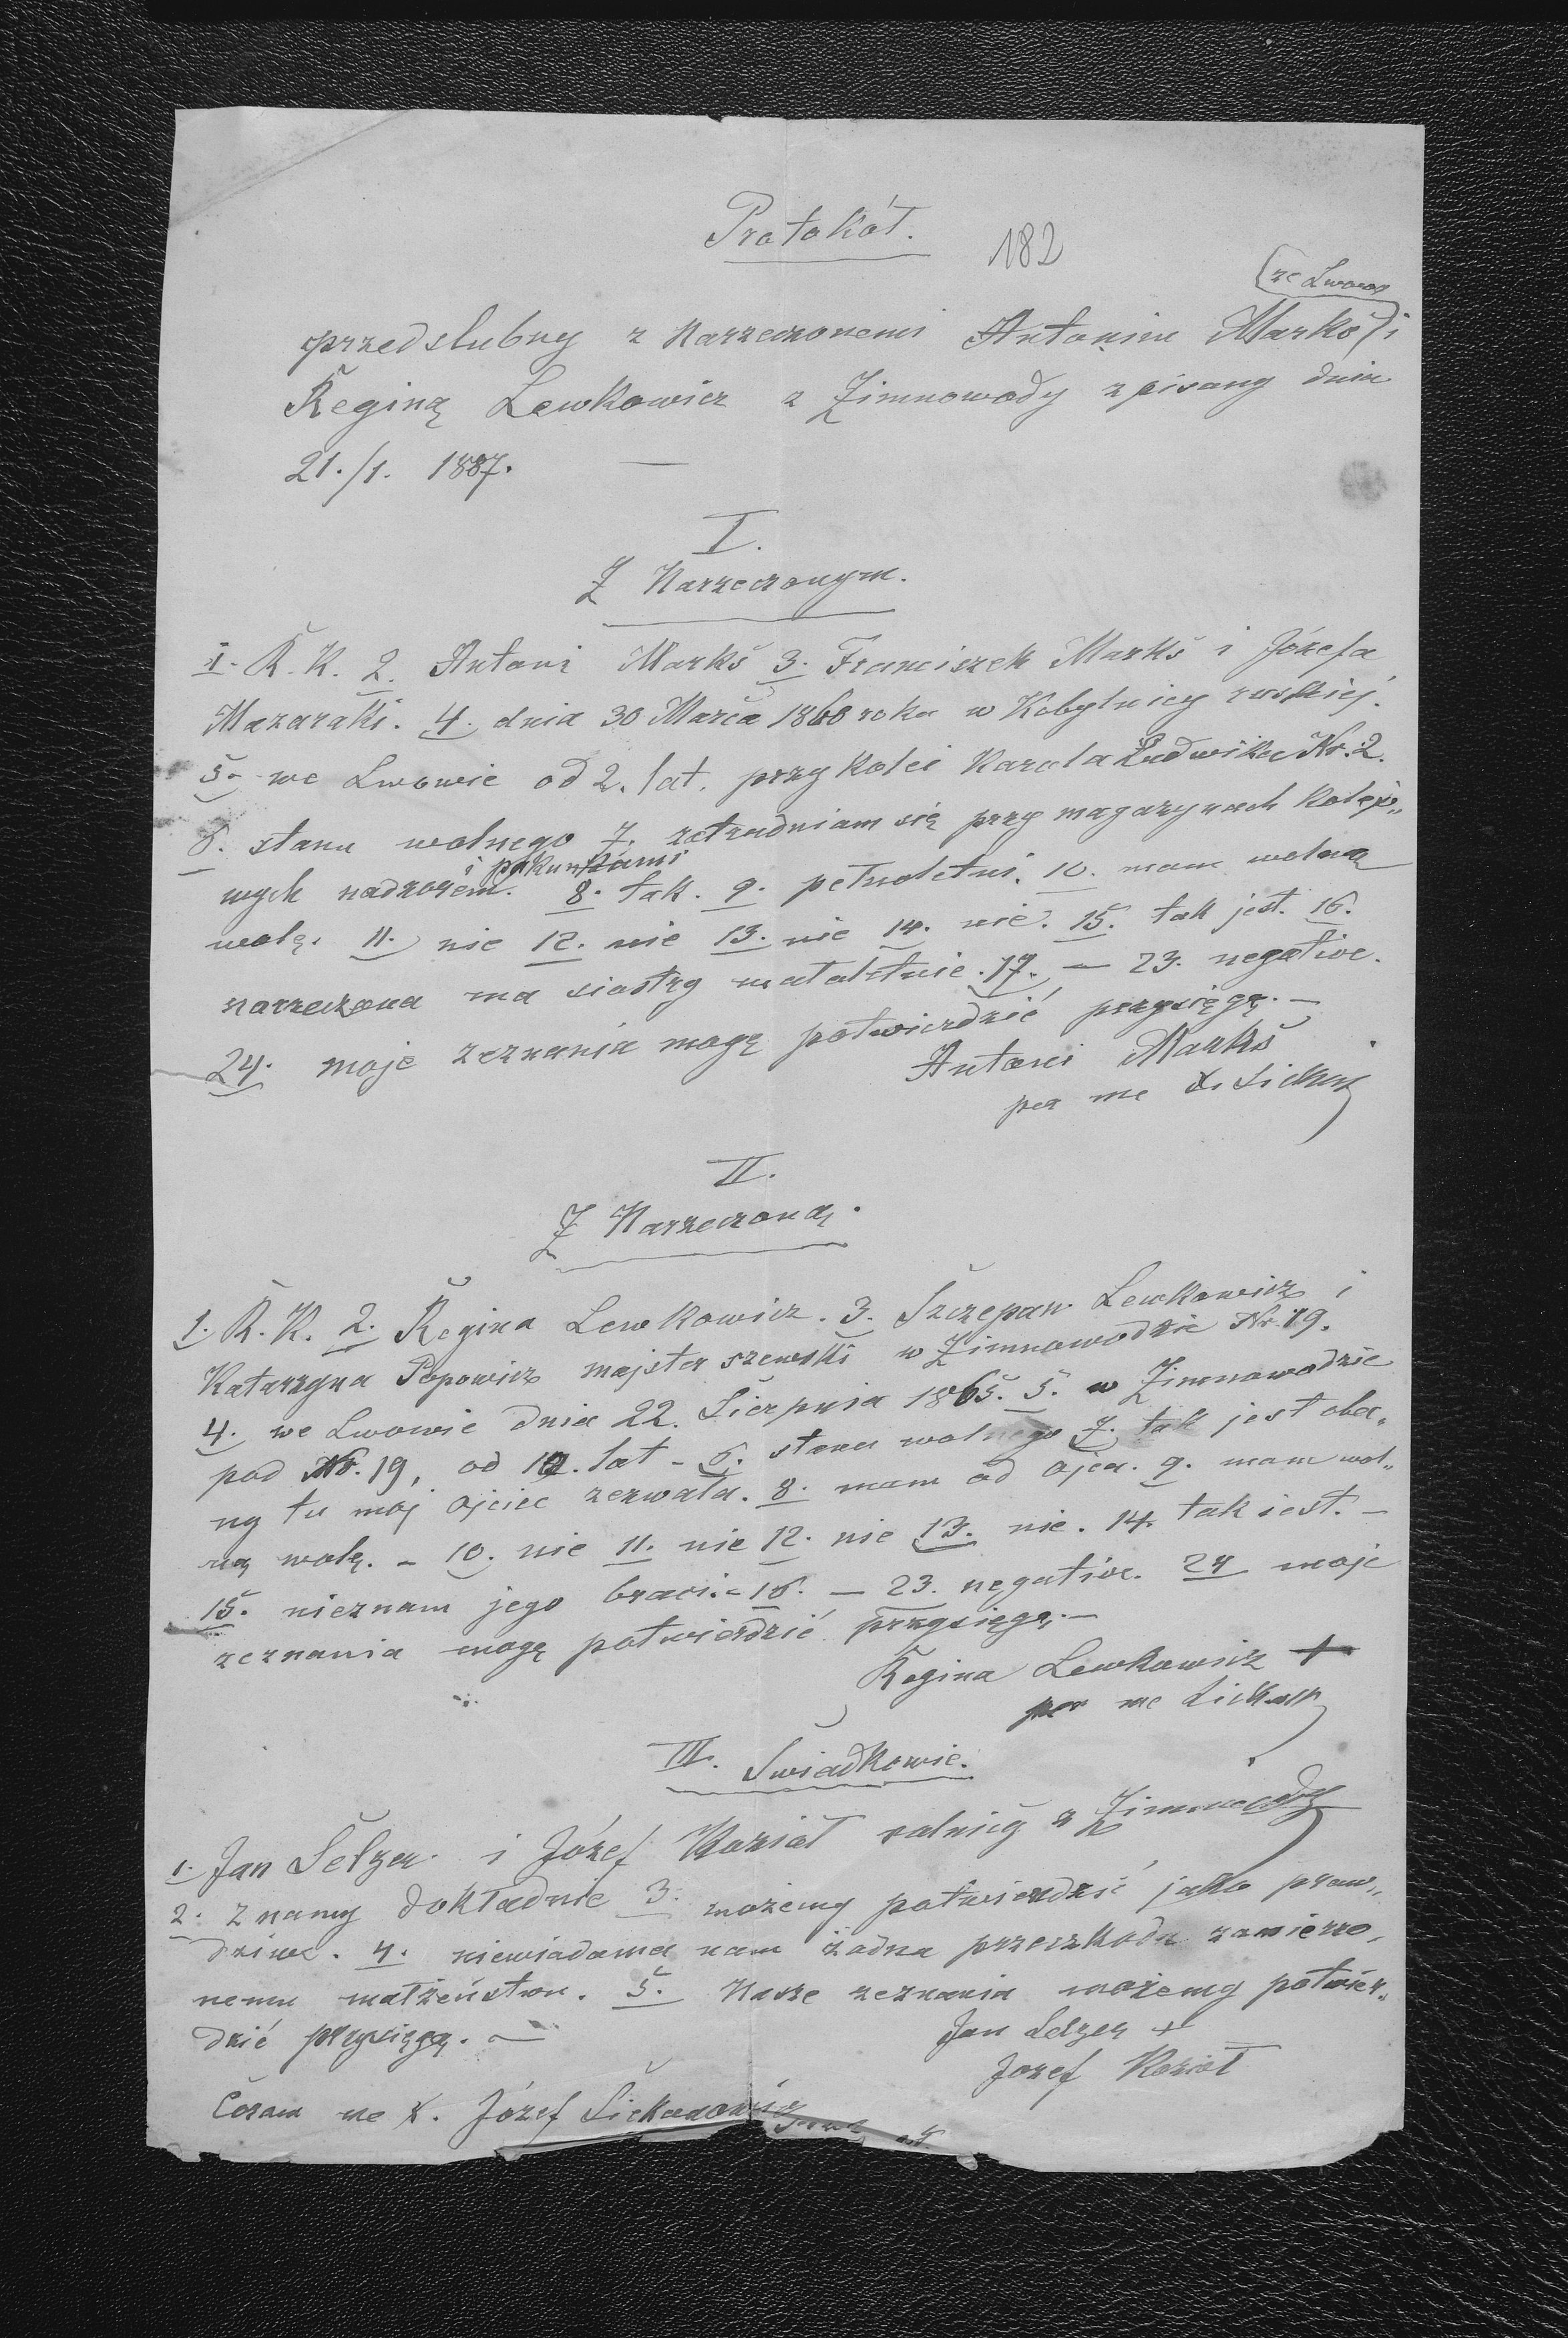 Protokół.
182
(ze Lwowa
przedślubny z Narzeczonemi Antonim Markś) i
Reginą Lewkowicz z Zimnowody spisany dnia
21./1. 1887. —
I.
Z Narzeczonym.
1. R. K. 2. Antoni Markś 3. Franciszek Markś i Józefa
Mazaraki. 4. dnia 30 Marca 1860 roku w Kobylnicy ruskiéj.
5. we Lwowie od 2. lat. przy kolei Karola Ludwika Nr. 2.
6. stanu wolnego 7. zatrudniam się przy magazynach kolejo„
i pakunkami
wych nadzorem. 8. tak. 9. pełnoletni. 10. mam wolną
wolę. 11. nie 12. nie 13. nie 14. nie. 15. tak jest. 16.
narzeczona ma siostry małoletnie. 17. — 23. negative.
24. moje zeznania mogę potwierdzić przysięgą. —
Antoni Markś
per me X.
II.
Z Narzeczoną.
1. R. K. 2. Regina Lewkowicz. 3. Szczepan Lewkowicz i
Katarzyna Popowicz majster szewski w Zimnowodzie Nr. 19.
4. we Lwowie dnia 22. Sierpnia 1865. 5. w Zimnowodzie
pod Nr. 19, od 12. lat - 6. stanu wolnego 7. tak jest obec„
ny tu mój ojciec zezwala. 8. mam od ojca. 9. mam wol„
ną wolę. - 10. nie 11. nie 12. nie 13. nie. 14. tak jest. -
15. nieznam jego braci. - 16. — 23. negative. 24 moje
zeznania mogę potwierdzić przysięgą. —
Regina Lewkowicz +
per me
III. Świadkowie.
1. Jan Selzer i Józef Kozioł rolnicy z Zimnowody
2. Znamy dokładnie 3. możemy potwierdzić jako praw„
dziwe. 4. niewiadoma nam żadna przeszkoda zamierzo„
nemu małżeństwu. 5. Nasze zeznania możemy potwier„
dzić przysięgą. —
Jan Selzer +
Jozef Kozioł
Coram me X. Józef